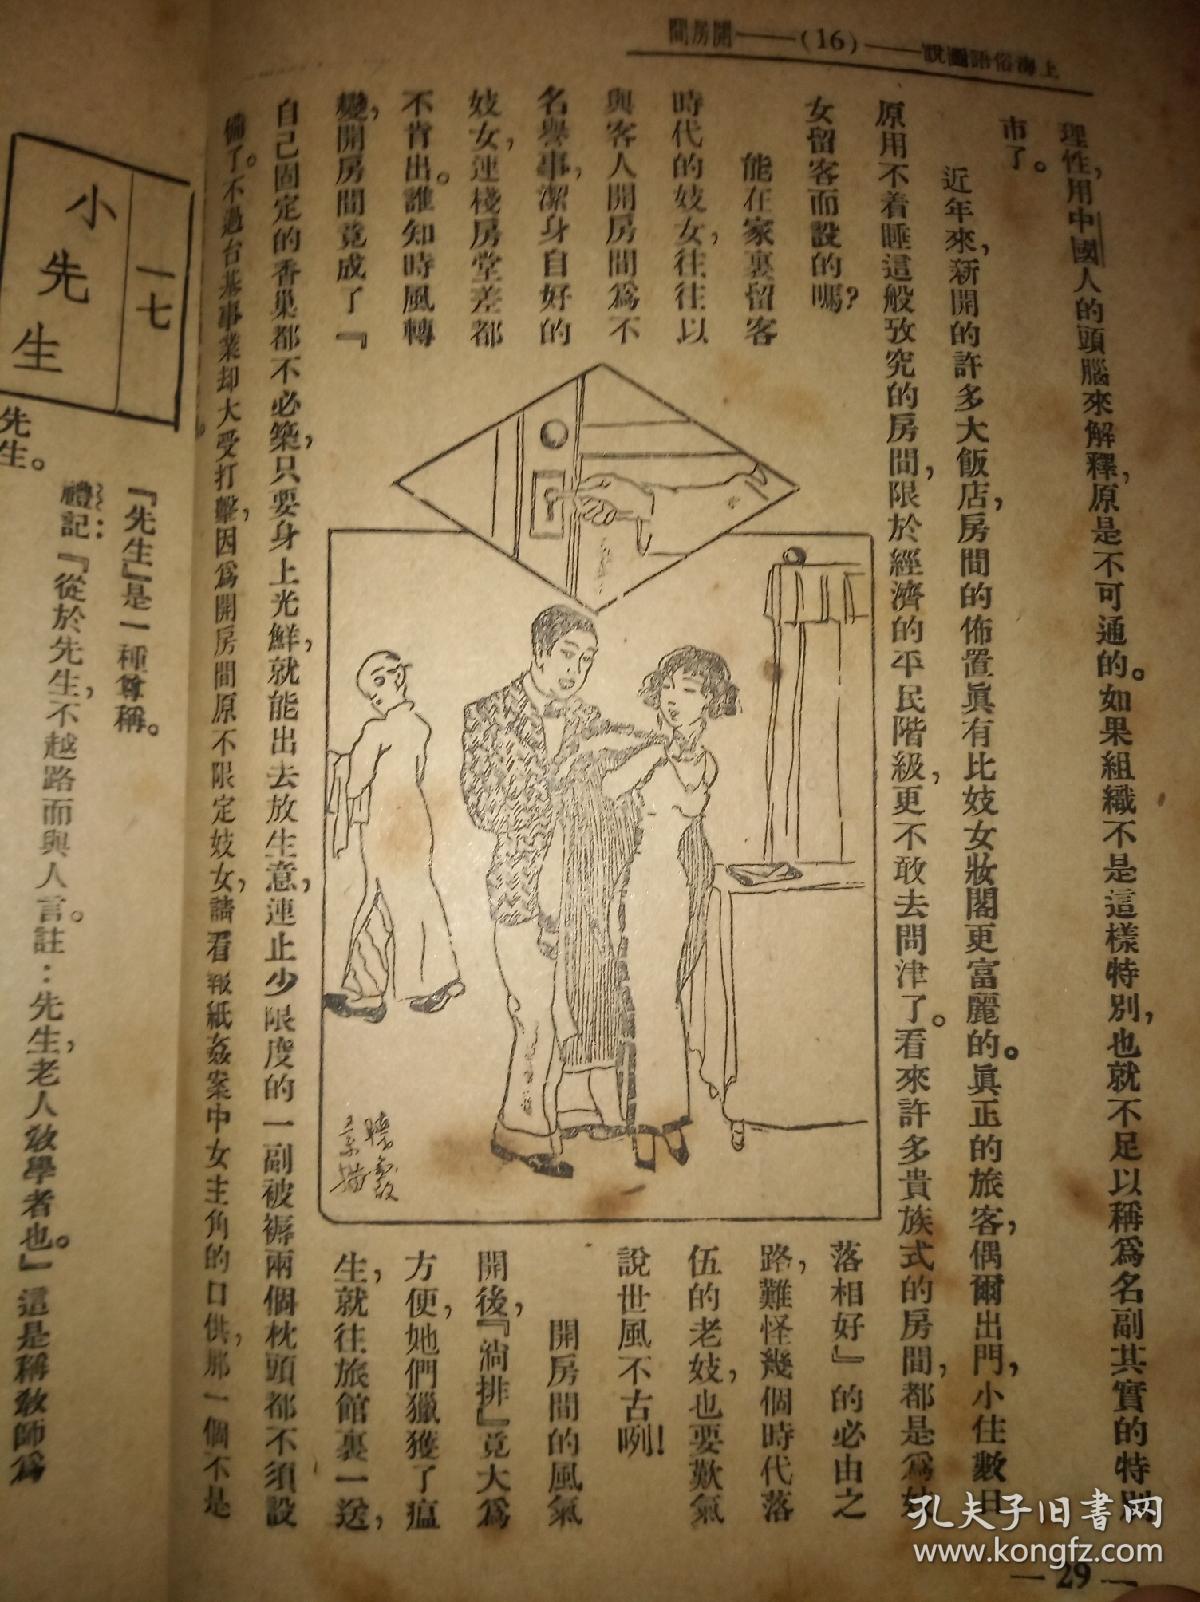 上海俗語圖說——(16)——開房間
理性，用中國人的頭腦來解釋，原是不可通的。如果組織不是這樣特別，也就不足以稱爲名副其實的特別
市了。
近年來，新開的許多大飯店，房間的佈置眞有比妓女妝閣更富麗的。眞正的旅客，偶爾出門，小住數日
原用不着睡這般攷究的房間，限於經濟的平民階級，更不敢去問津了。看來許多貴族式的房間，都是爲妓
女留客而設的嗎？
能在家裏留客
時代的妓女，往往以
與客人開房間爲不
名譽事，潔身自好的
妓女，連棧房堂差都
不肯出。誰知時風轉
變，開房間竟成了『
落相好』的必由之
路，難怪幾個時代落
伍的老妓，也要歎氣
說世風不古咧！
開房間的風氣
開後，『淌排』竟大爲
方便，她們獵獲了瘟
生，就往旅館裏一送，
自己固定的香巢都不必築，只要身上光鮮，就能出去放生意，連止少限度的一副被褥兩個枕頭都不須設
備了。不過台基事業却大受打擊，因爲開房間原不限定妓女，請看報紙姦案中女主角的口供，那一個不是
聽濤
素描
一七
小先生
『先生』是一種尊稱。
禮記：『從於先生，不越路而與人言。註：先生，老人敎學者也。』這是稱敎師爲
先生。
— 29 —
孔夫子旧书网
www.kongfz.com